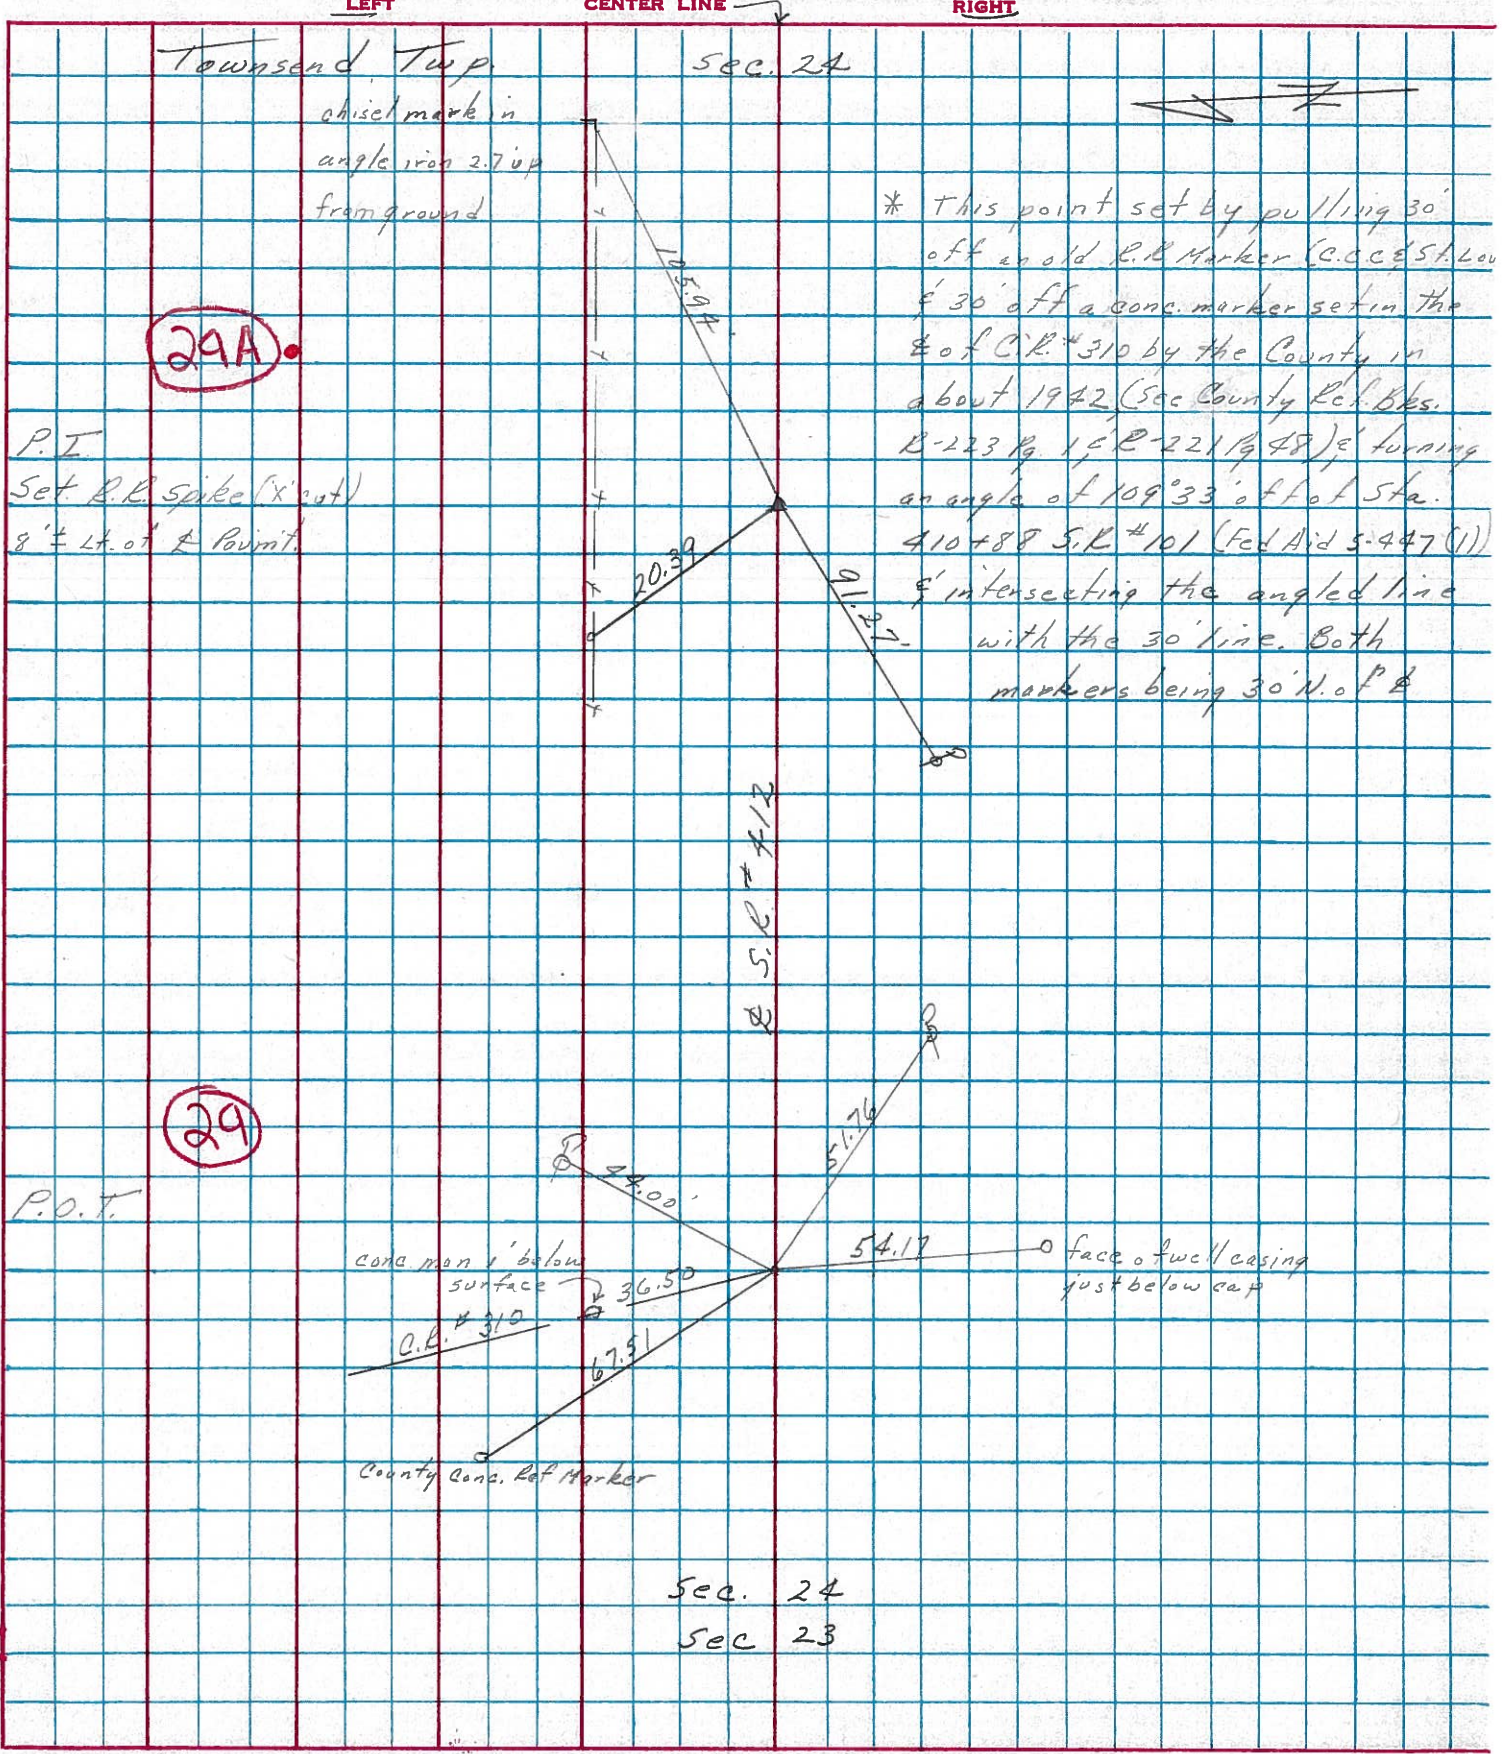 LEFT CENTER LINE RIGHT
Townsend Twp. Sec. 24
N
chisel mark in
angle iron 2.7 up
from ground
105.94
* This point set by pulling 30'
off an old R.R Marker (C.C.C & St. Lou
& 30' off a conc. marker set in the
℄ of C.R. #310 by the County in
about 1942, (See County Ref. Bks.
R-223 Pg. 1 & R-221 Pg 48) & turning
an angle of 109°33' off of Sta.
410+88 S.R. #101 (Fed Aid S-447 (1))
& intersecting the angled line
with the 30' line. Both
markers being 30' N. of ℄
29A
P.I.
Set R.R. Spike ('X' cut)
8'± Lt. of ℄ Pavm't.
20.39
91.27
℄ S.R. # 412
29
P.O.T.
51.76
44.00'
54.17
face of well casing
just below cap
conc. mon 1' below
surface
36.50
C.R. # 310
67.51
County Conc. Ref Marker
Sec. 24
Sec 23